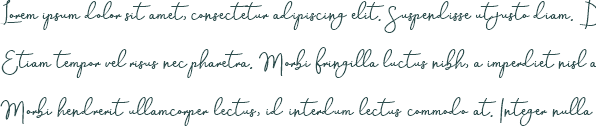 Lorem ipsum dolor sit amet, consectetur adipiscing elit. Suspendisse ut justo diam. D
Etiam tempor vel risus nec pharetra. Morbi fringilla luctus nibh, a imperdiet nisl a
Morbi hendrerit ullamcorper lectus, id interdum lectus commodo at. Integer nulla